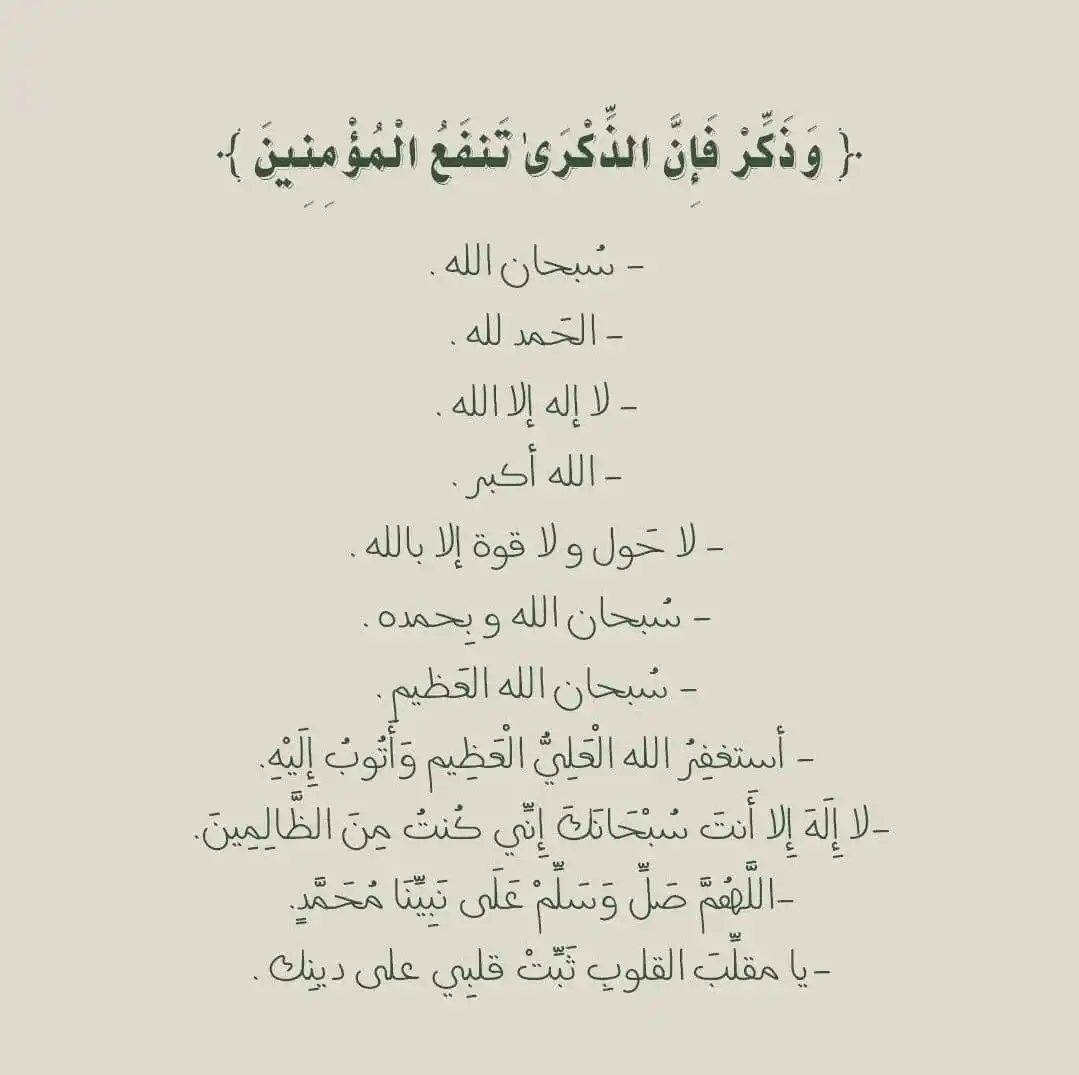 ﴿ وَذَكِّرْ فَإِنَّ الذِّكْرَىٰ تَنفَعُ الْمُؤْمِنِينَ ﴾
– سُبحان الله .
– الحَمد لله .
– لا إله إلا الله .
– الله أكبر .
– لا حَول و لا قوة إلا بالله .
– سُبحان الله و بِحمده .
– سُبحان الله العَظيم .
– أستغفِرُ الله الْعَلِيُّ الْعَظِيم وَأَتُوبُ إِلَيْهِ.
–لا إِلَهَ إِلا أَنتَ سُبْحَانَكَ إِنِّي كُنتُ مِنَ الظَّالِمِينَ.
–اللَّهُمَّ صَلِّ وَسَلِّمْ عَلَى نَبِيِّنَا مُحَمَّدٍ.
–يا مقلِّبَ القلوبِ ثَبِّتْ قلبِي على دينِك .